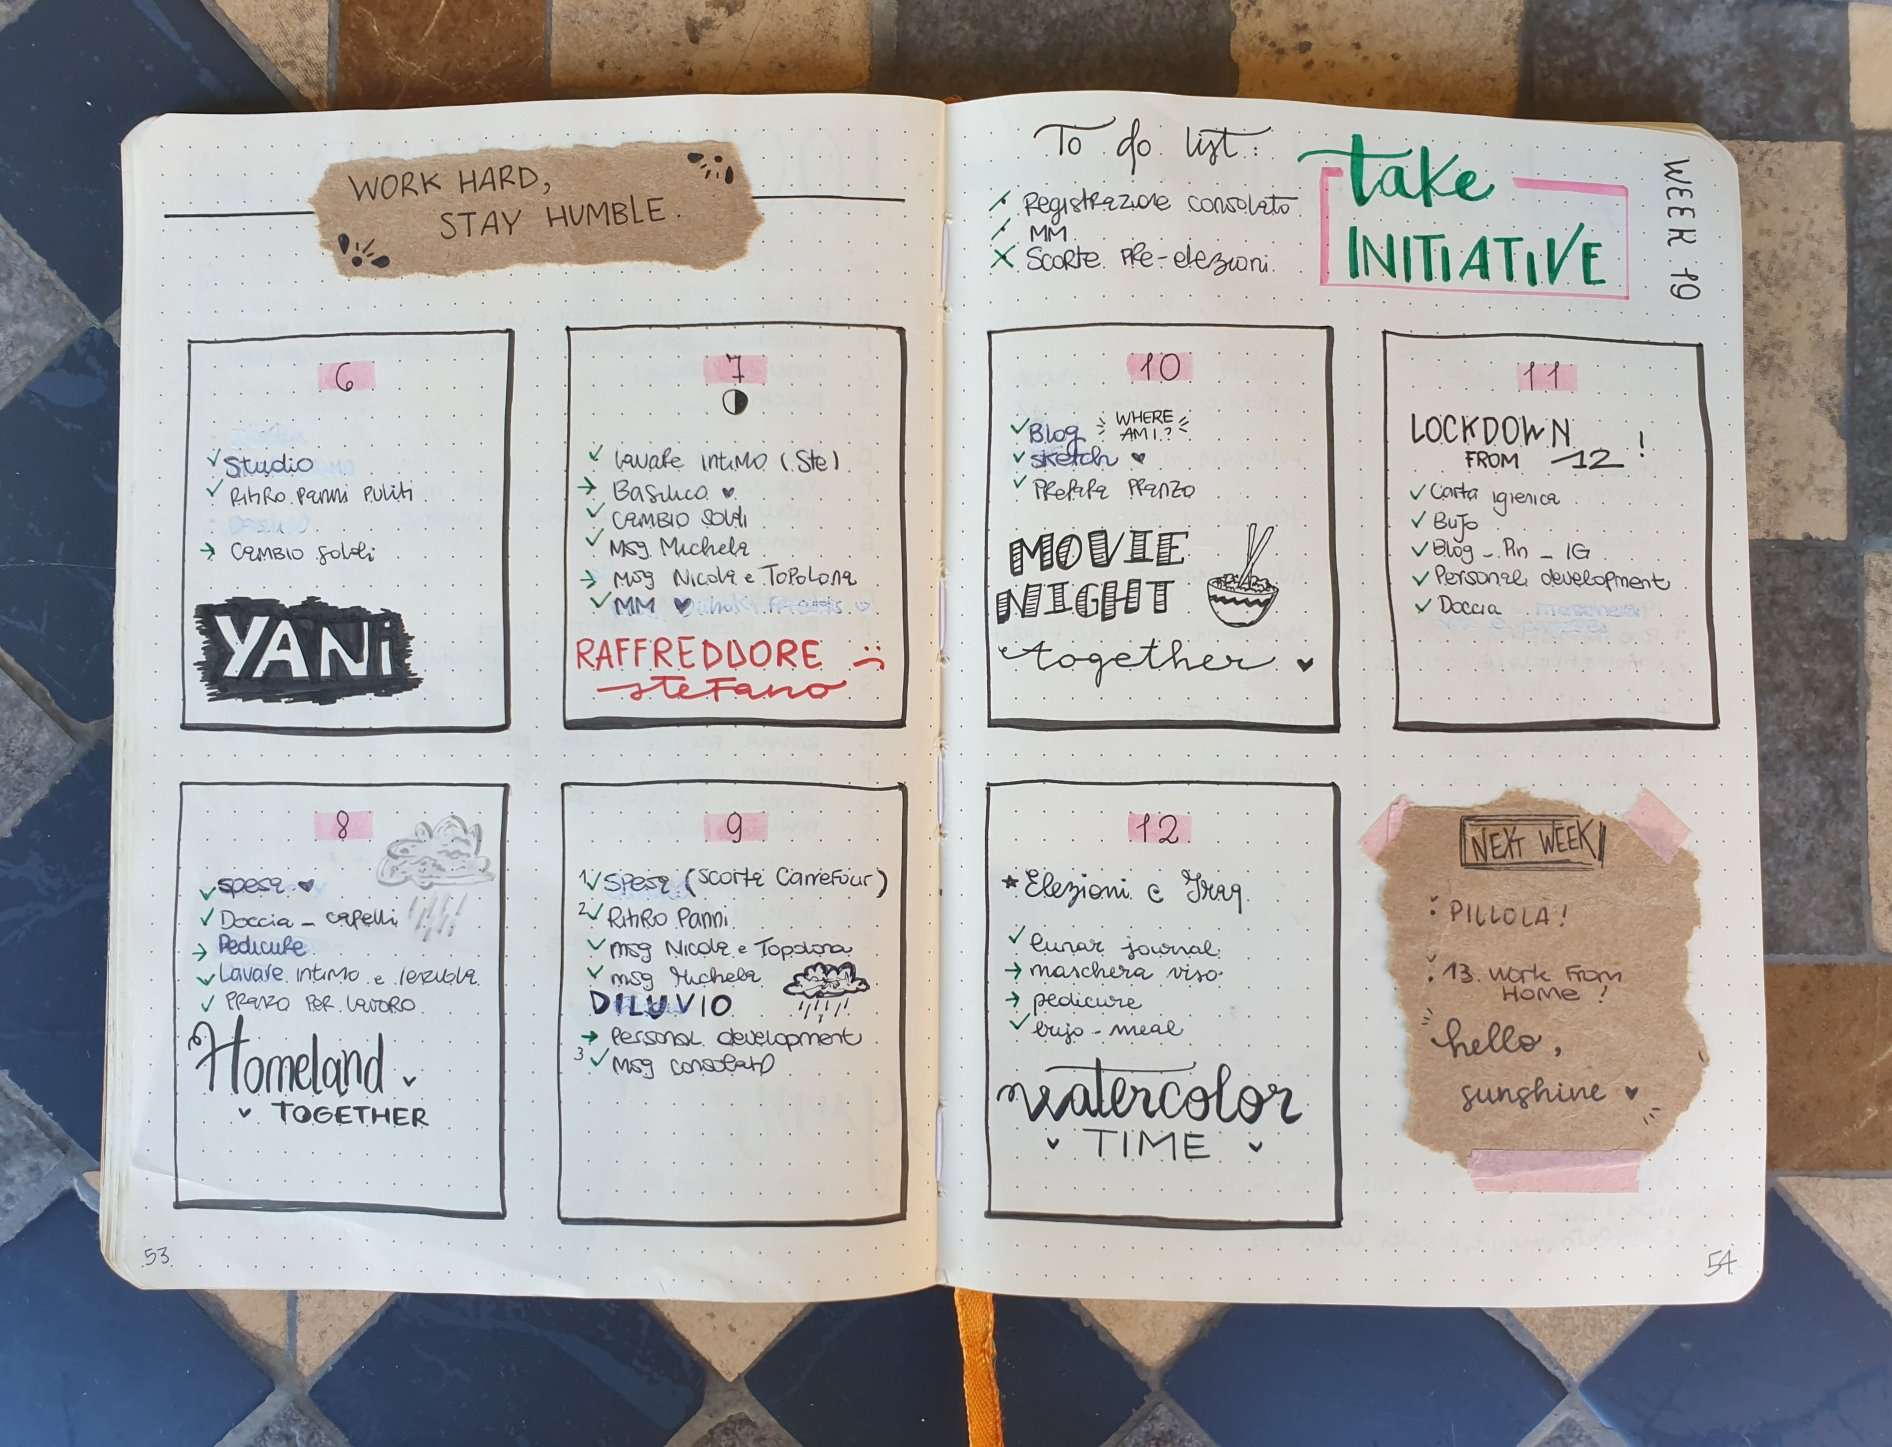 WORK HARD,
STAY HUMBLE.
6
Studio
Ritiro panni puliti
Cambio soldi
YANi
7
Lavare intimo (Ste)
Basilico ♥
Cambio soldi
Msg Michela
Msg Nicola e Topolona
MM ♥
RAFFREDDORE :(
stefano
8
Spesa ♥
Doccia - capelli
Pedicure
Lavare intimo e
Pranzo per lavoro
Homeland
TOGETHER
9
1 Spesa (scorta Carrefour)
2 Ritiro panni
msg Nicola e Topolona
msg Michela
DILUVIO
Personal development
3 Msg consolato
53
To do list:
Registrazione consolato
MM
Scorte pre-elezioni
take
INITIATIVE
WEEK 19
10
Blog WHERE
AM I?
sketch ♥
Prepara pranzo
MOVIE
NIGHT
together ♥
11
LOCKDOWN
FROM 12 !
Carta igienica
Bujo
Blog - Pin - IG
Personal development
Doccia
12
★ Elezioni e Iraq
lunar journal
maschera viso
pedicure
bujo - meal
watercolor
TIME
NEXT WEEK!
: PILLOLA!
: 13. WORK FROM
HOME!
hello,
sunshine ♥
54